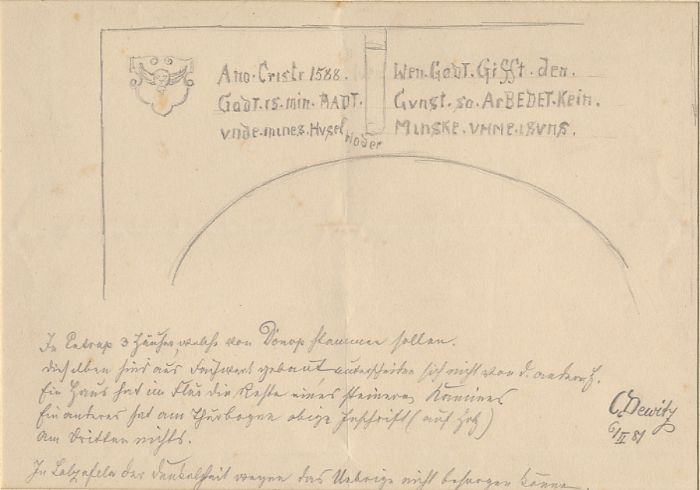 Ano. Cristi 1588.
Godt. is. min. RADT.
vnde. mines. Husel
Hoder
Wen. Godt. Gifft. den.
Gvnst. so. ArBEDET. Kein.
Minske. vmme. isvns.
In 3 Häuser, welche von Donop stammen sollen.
Dieselben sind aus Fachwerk gebaut unterscheiden sich nicht von d. andern H.
Ein Haus hat im Flur die Reste eines steinernen Kamines
Ein anderes hat am Thürbogen obige Inschrift (auf Holz)
Am dritten nichts.
In der Dunkelheit wegen das Uebrige nicht besorgen können.
C. Dewitz
6/II 81